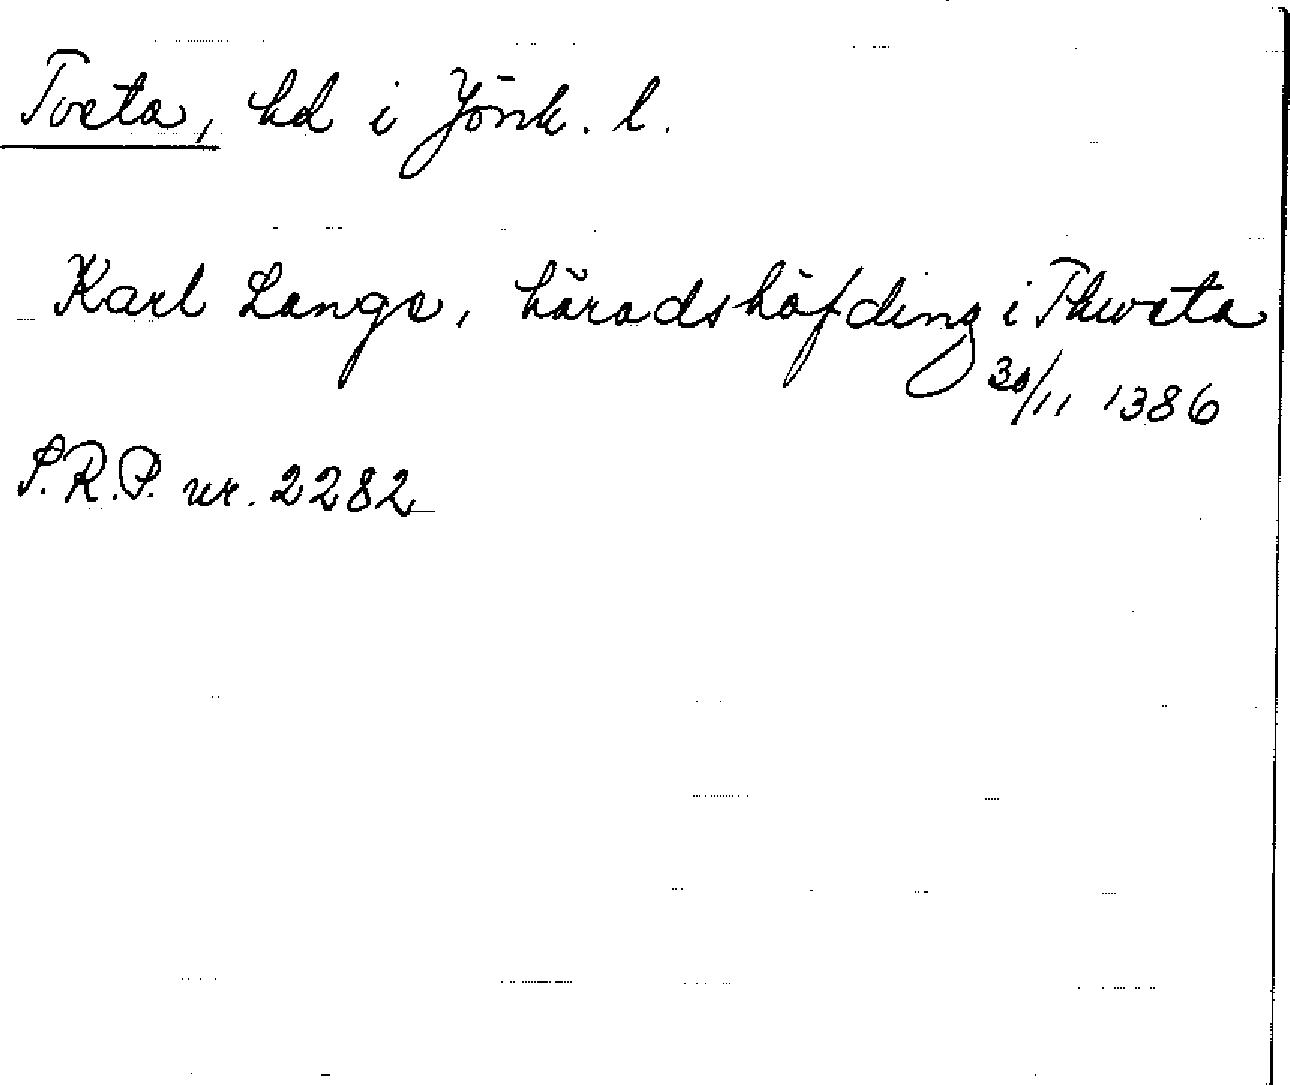 Tveta, hd i Jönk. l.
Karl Lange, häradshöfding i Thweta
30/11 1386
S.R.P. nr. 2282